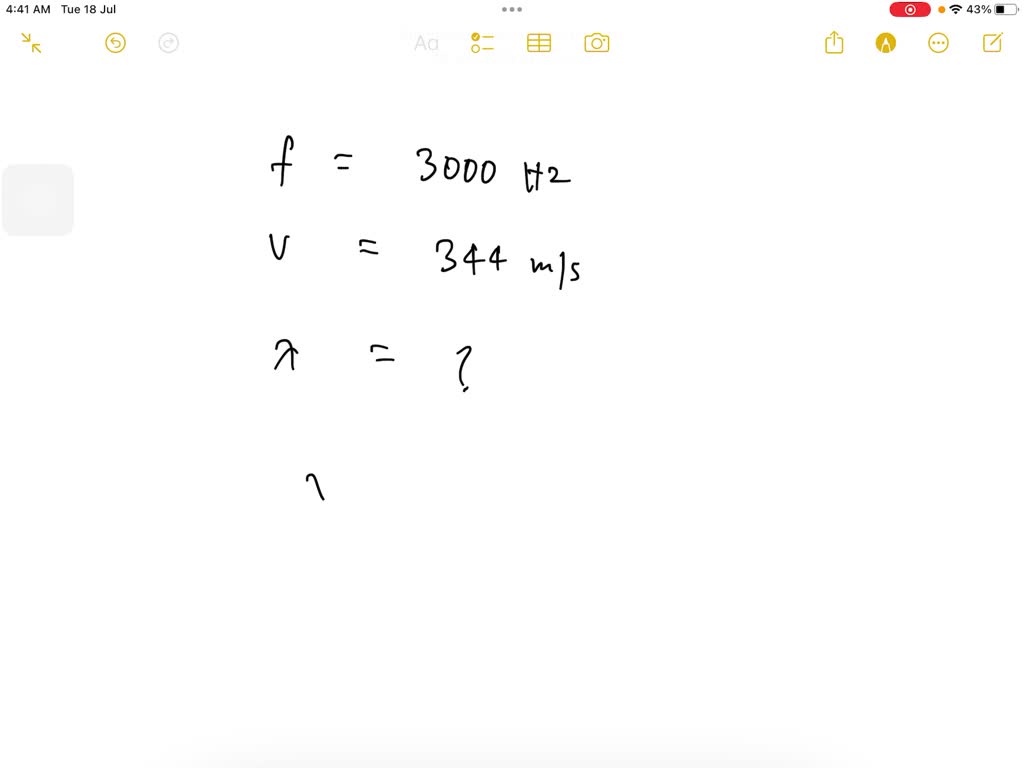 4:41 AM Tue 18 Jul
43%
Aa
f = 3000 Hz
v = 344 m/s
λ = ?